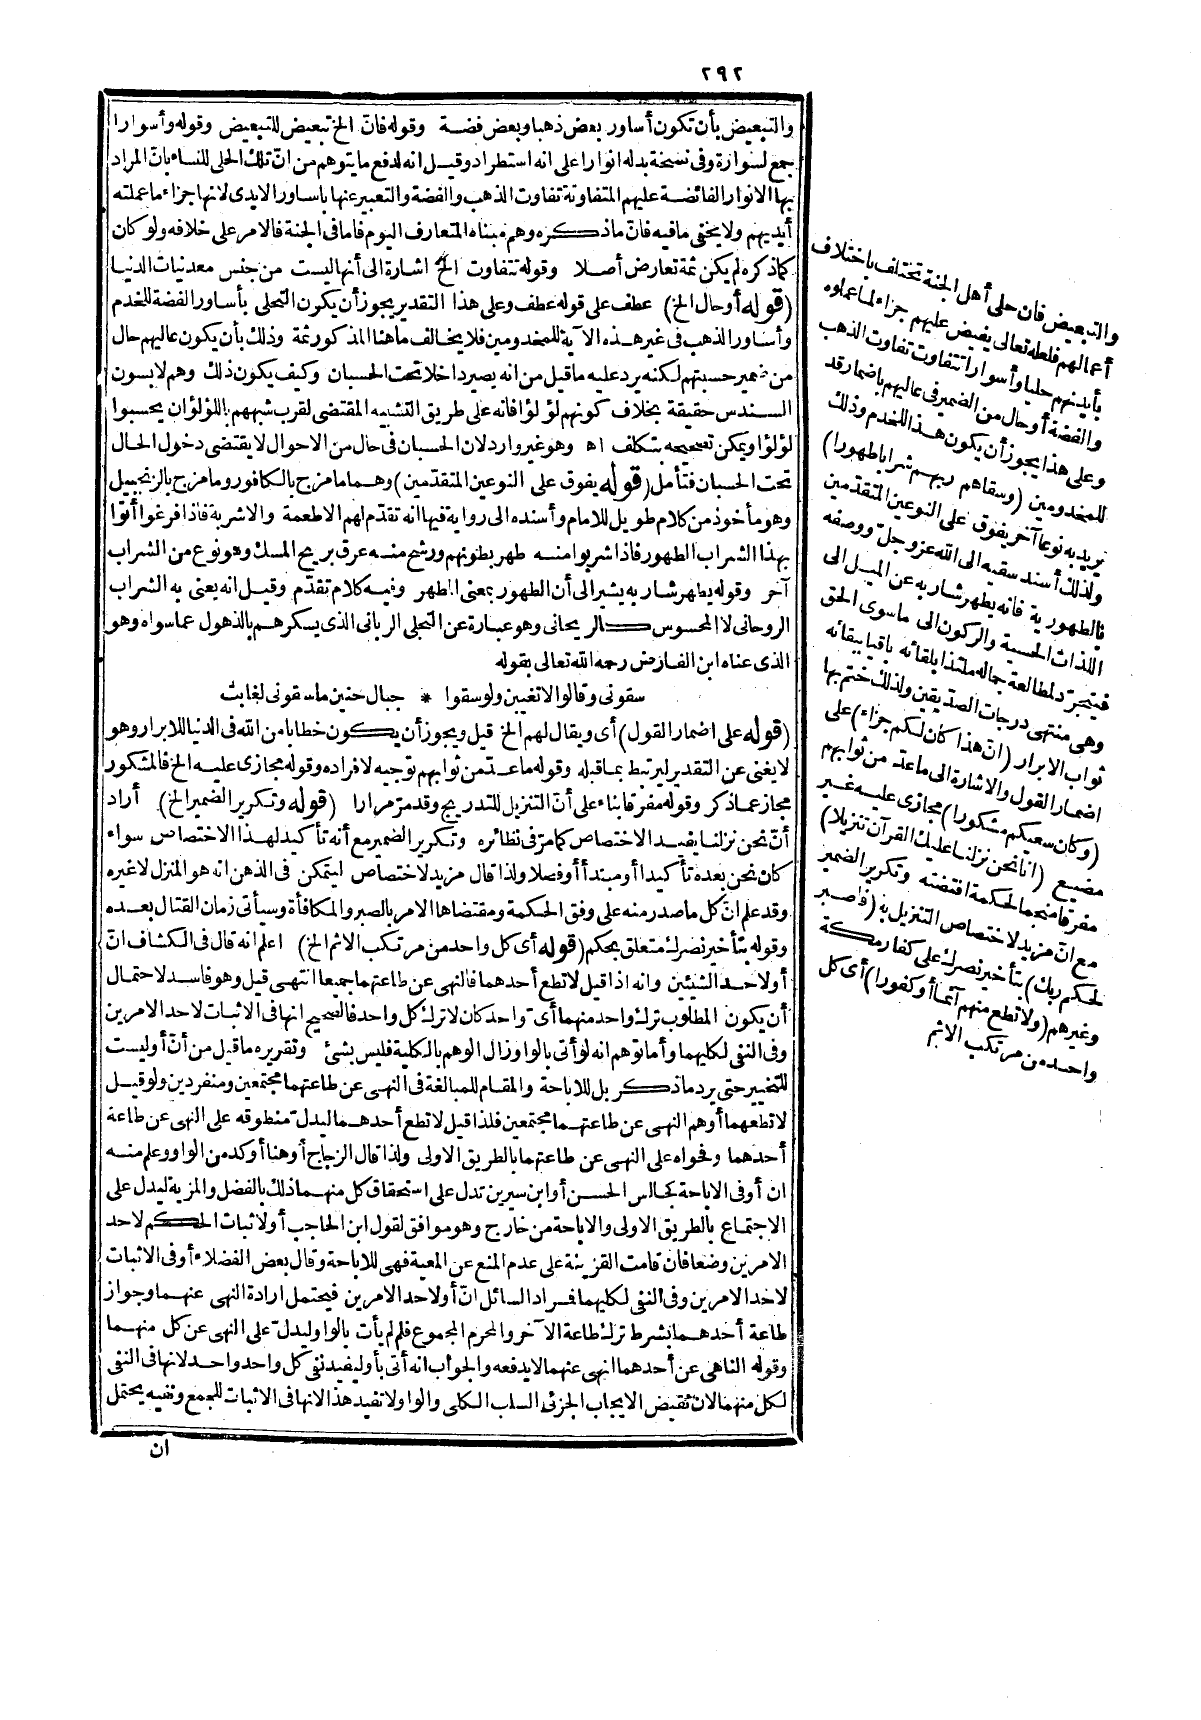 ٢٩٢
والتبعيض بأن تكون أساور بعض ذهبا وبعض فضة وقوله فانّ الخ تبعيض للتبعيض وقوله وأسوارا
جمع لسوارة وفى نسخة بدله انوارا على انه استطراد وقيل انه لدفع ما يتوهم من انّ تلك الحلى للنساء بانّ المراد
بها الانوار الفائضة عليهم المتفاوتة تفاوت الذهب والفضة والتعبير عنها بأساور الايدى لانها جزاء ما عملته
أيديهم ولا يخفى ما فيه فانّ ما ذكره وهم مبناه المتعارف اليوم فاما فى الجنة فالامر على خلافه ولو كان
كما ذكره لم يكن ثمة تعارض أصلا وقوله تتفاوت الخ اشارة الى أنها ليست من جنس معدنيات الدنيا
(قوله أو حال الخ) عطف على قوله عطف وعلى هذا التقدير يجوز أن يكون التحلى بأساور الفضة للخدم
وأساور الذهب فى غير هذه الآية للمخدومين فلا يخالف ما هنا المذكور ثمة وذلك بأن يكون عاليهم حال
من ضمير حسبتهم لكنه يرد عليه ما قيل من انه يصير داخلا تحت الحسبان وكيف يكون ذلك وهم لابسون
السندس حقيقة بخلاف كونهم لؤلؤا فانه على طريق التشبيه المقتضى لقرب شبههم باللؤلؤ ان يحسبوا
لؤلؤا ويمكن تصحيحه بتكلف اه وهو غير وارد لان الحسبان فى حال من الاحوال لا يقتضى دخول الحال
تحت الحسبان فتأمل (قوله يفوق على النوعين المتقدمين) وهما ما مزج بالكافور وما مزج بالزنجبيل
وهو مأخوذ من كلام طويل للامام وأسنده الى رواية فيها انه تقدّم لهم الاطعمة والاشربة فاذا فرغوا أتوا
بهذا الشراب الطهور فاذا شربوا منه طهر بطونهم ورشح منه عرق بريح المسك وهو نوع من الشراب
آخر وقوله يطهر شاربه يشير الى أن الطهور بمعنى المطهر وفيه كلام تقدّم وقيل انه يعنى به الشراب
الروحانى لا المحسوس كالريحانى وهو عبارة عن التجلى الربانى الذى يسكرهم بالذهول عما سواه وهو
الذى عناه ابن الفارض رحمه الله تعالى بقوله
سقونى وقالوا لا تغنين ولو سقوا * جبال حنين ما سقونى لغابت
(قوله على اضمار القول) أى ويقال لهم الخ قيل ويجوز أن يكون خطابا من الله فى الدنيا للابرار وهو
لا يغنى عن التقدير ليرتبط بما قبله وقوله ما عدّ من ثوابهم توجيه لافراده وقوله مجازى عليه الخ فالمشكور
مجاز عما ذكر وقوله مفرّقا بناء على أنّ التنزيل للتدريج وقد مرّ مرارا (قوله وتكرير الضمير الخ) أراد
أنّ نحن نزلنا يفيد الاختصاص كما مرّ فى نظائره وتكرير الضمير مع أنه تأكيد لهذا الاختصاص سواء
كان نحن بعده تأكيدا أو مبتدأ أو فصلا ولذا قال مزيد لاختصاص ليتمكن فى الذهن انه هو المنزل لا غيره
وقد علم انّ كل ما صدر منه على وفق الحكمة ومقتضاها الامر بالصبر والمكافأة وسيأتى زمان القتال بعده
وقوله بتأخير نصرك متعلق بحكم (قوله أى كل واحد من مرتكب الاثم الخ) اعلم انه قال فى الكشاف انّ
أو لاحد الشيئين وانه اذا قيل لا تطع أحدهما فالنهى عن طاعتهما جميعا انتهى قيل وهو فاسد لاحتمال
أن يكون المطلوب ترك واحد منهما أىّ واحد كان لا ترك كل واحد فالصحيح انها فى الاثبات لاحد الامرين
وفى النفى لكليهما وأما توهم انه لو أتى بالواو زال الوهم بالكلية فليس بشئ وتقريره ما قيل من أنّ أو ليست
للتخيير حتى يرد ما ذكر بل للاباحة والمقام للمبالغة فى النهى عن طاعتهما مجتمعين ومنفردين ولو قيل
لا تطعهما أوهم النهى عن طاعتهما مجتمعين فلذا قيل لا تطع أحدهما ليدلّ منطوقه على النهى عن طاعة
أحدهما وفحواه على النهى عن طاعتهما بالطريق الاولى ولذا قال الزجاج أو هنا أوكد من الواو وعلم منه
ان أو فى الاباحة كجالس الحسن أو ابن سيرين تدل على استحقاق كل منهما ذلك بالفضل والمزية ليدل على
الاجتماع بالطريق الاولى والاباحة من خارج وهو موافق لقول ابن الحاجب أو لاثبات الحكم لاحد
الامرين وضعا فان قامت القرينة على عدم المنع عن المعية فهى للاباحة وقال بعض الفضلاء أو فى الاثبات
لاحد الامرين وفى النفى لكليهما فمراد السائل انّ أو لاحد الامرين فيحتمل ارادة النهى عنهما وجواز
طاعة أحدهما بشرط ترك طاعة الآخر والمحرم المجموع فلم لم يأت بالواو ليدلّ على النهى عن كل منهما
وقوله الناهى عن أحدهما انهى عنهما لا يدفعه والجواب انه أتى بأو ليفيد نفى كل واحد واحد لانها فى النفى
لكل منهما لان نقيض الايجاب الجزئى السلب الكلى والواو لا تفيد هذا لانها فى الاثبات للجمع ونفيه يحتمل
ان
والتبعيض فان حلى أهل الجنة تختلف باختلاف
أعمالهم فلعله تعالى يفيض عليهم جزاء لما عملوه
بأيديهم حليا وأسوارا تتفاوت تفاوت الذهب
والفضة أو حال من الضمير فى عاليهم باضمار قد
وعلى هذا يجوز أن يكون هذا للخدم وذلك
للمخدومين (وسقاهم ربهم شرابا طهورا)
يريد به نوعا آخر يفوق على النوعين المتقدمين
ولذلك أسند سقيه الى الله عز وجلّ ووصفه
بالطهورية فانه يطهر شاربه عن الميل الى
اللذات الحسية والركون الى ما سوى الحق
فيتجرّد لمطالعة جماله ملتذا بلقائه باقيا ببقائه
وهى منتهى درجات الصديقين ولذلك ختم بها
ثواب الابرار (انّ هذا كان لكم جزاء) على
اضمار القول والاشارة الى ما عدّ من ثوابهم
(وكان سعيكم مشكورا) مجازى عليه غير
مضيع (انا نحن نزلنا عليك القرآن تنزيلا)
مفرقا منجما لحكمة اقتضته وتكرير الضمير
مع انّ مزيد لاختصاص التنزيل به (فاصبر
لحكم ربك) بتأخير نصرك على كفار مكة
وغيرهم (ولا تطع منهم آثما أو كفورا) أى كل
واحد من مرتكب الاثم